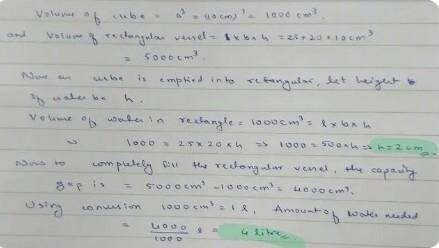 Volume of cube = a³ = (10cm)³ = 1000 cm³.
and Volume of rectangular vessel = l x b x h = 25 x 20 x 10cm³
= 5000cm³.
Now as cube is emptied into retangular, let height
of water be h.
Volume of water in rectangle = 1000cm³ = l x b x h
1000 = 25 x 20 x h => 1000 = 500xh => h = 2 cm.
Now to completely fill the rectangular vessel, the capacity
gap is = 5000cm³ - 1000cm³ = 4000cm³.
Using conversion 1000cm³ = 1 l, Amount of water needed
= 4000/1000 l = 4 litres.